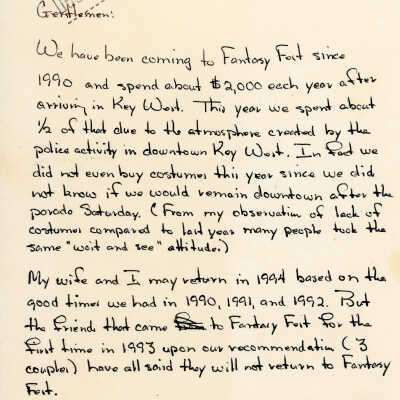 Gentlemen:
We have been coming to Fantasy Fest since
1990 and spend about $2,000 each year after
arriving in Key West. This year we spent about
1/2 of that due to the atmosphere created by the
police activity in downtown Key West. In fact we
did not even buy costumes this year since we did
not know if we would remain downtown after the
parade Saturday. (From my observation of lack of
costumes compared to last year many people took the
same "wait and see" attitude.)
My wife and I may return in 1994 based on the
good times we had in 1990, 1991, and 1992. But
the friends that came to Fantasy Fest for the
first time in 1993 upon our recommendation (3
couples) have all said they will not return to Fantasy
Fest.